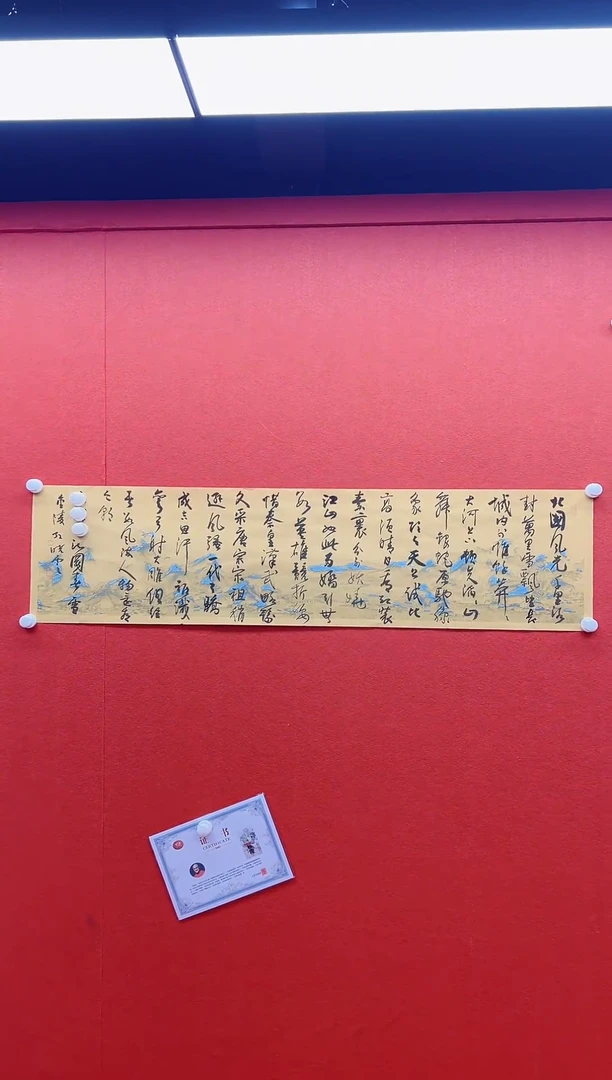 北國風光千里冰
封萬里雪飄望長
城内外惟餘莽莽
大河上下頓失滔滔山
舞銀蛇原馳蠟
象欲与天公試比
高須晴日看紅装
素裹分外妖嬈
江山如此多嬌引無
数英雄競折腰
惜秦皇漢武略輸
文采唐宗宋祖稍
遜風騷一代天驕
成吉思汗祇識
彎弓射大雕俱往
矣数風流人物還看
今朝
沁園春雪
金陵
证 书
CERTIFICATE